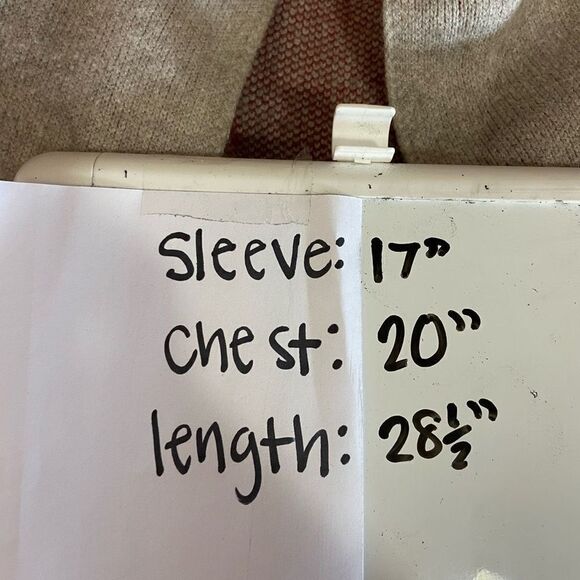 sleeve: 17"
chest: 20"
length: 28 1/2"